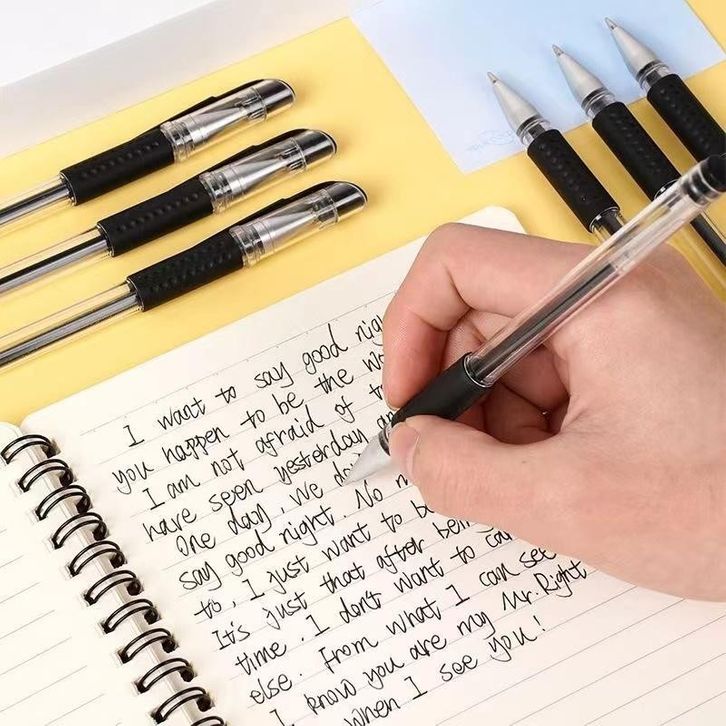 I want to say good
you happen to be the
I am not afraid of
have seen yesterday
One day, we
say good night. No
to, I just want to
It's just that after
time. I don't want to
else. From what I can see
I know you are my Mr. Right
when I see you!